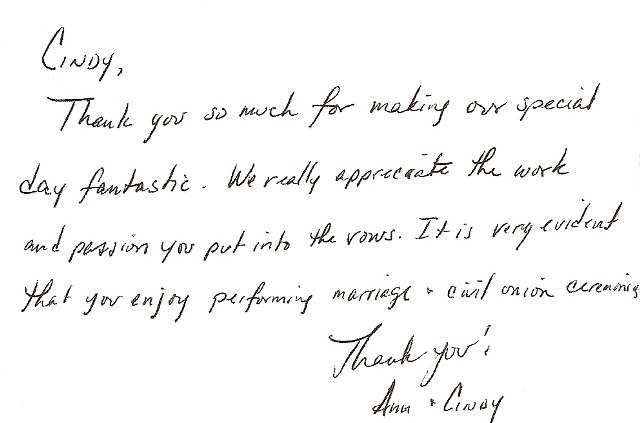 Cindy,
Thank you so much for making our special
day fantastic. We really appreciate the work
and passion you put into the vows. It is very evident
that you enjoy performing marriage + civil union ceremonies
Thank you!
Ann + Cindy